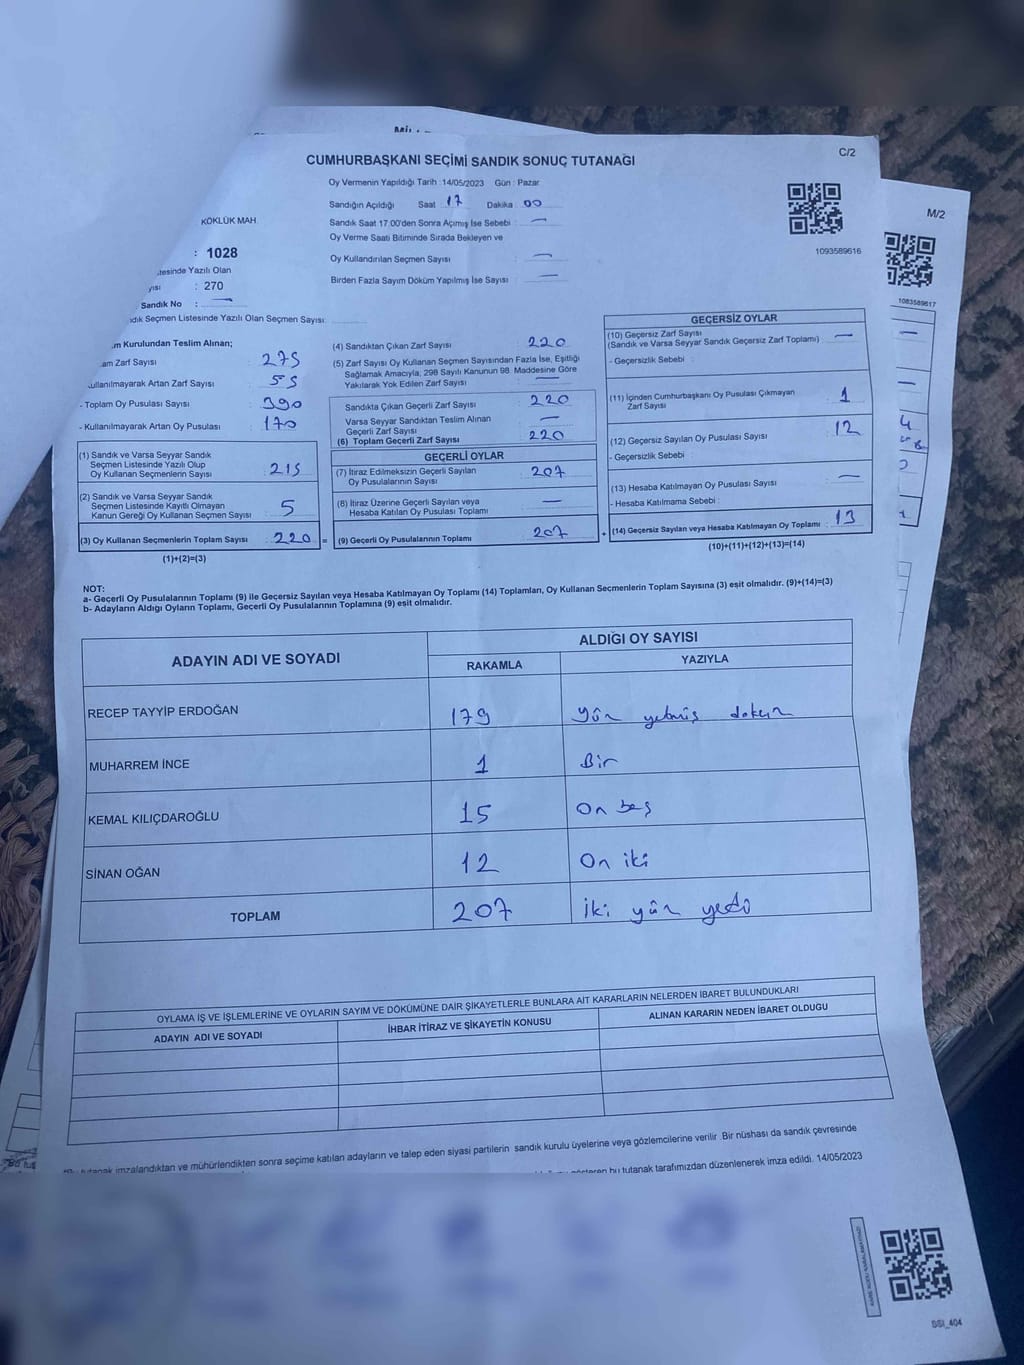 CUMHURBAŞKANI SEÇİMİ SANDIK SONUÇ TUTANAĞI
C/2
Oy Vermenin Yapıldığı Tarih :14/05/2023 Gün : Pazar
Sandığın Açıldığı Saat 17 Dakika 00
M/2
KÖKLÜK MAH.
Sandık Saat 17.00'den Sonra Açımış İse Sebebi : —
Oy Verme Saati Bitiminde Sırada Bekleyen ve
Oy Kullandırılan Seçmen Sayısı : —
1093589616
: 1028
tesinde Yazılı Olan
Birden Fazla Sayım Döküm Yapılmış İse Sayısı : —
yısı : 270
Sandık No : —
1083589617
dık Seçmen Listesinde Yazılı Olan Seçmen Sayısı:
m Kurulundan Teslim Alınan;
am Zarf Sayısı 275
ullanılmayarak Artan Zarf Sayısı 55
- Toplam Oy Pusulası Sayısı 390
- Kullanılmayarak Artan Oy Pusulası 170
(1) Sandık ve Varsa Seyyar Sandık
Seçmen Listesinde Yazılı Olup
Oy Kullanan Seçmenlerin Sayısı : 215
(2) Sandık ve Varsa Seyyar Sandık
Seçmen Listesinde Kayıtlı Olmayan
Kanun Gereği Oy Kullanan Seçmen Sayısı : 5
(3) Oy Kullanan Seçmenlerin Toplam Sayısı : 220 =
(1)+(2)=(3)
(4) Sandıktan Çıkan Zarf Sayısı : 220
(5) Zarf Sayısı Oy Kullanan Seçmen Sayısından Fazla İse, Eşitliği
Sağlamak Amacıyla; 298 Sayılı Kanunun 98. Maddesine Göre
Yakılarak Yok Edilen Zarf Sayısı : —
Sandıkta Çıkan Geçerli Zarf Sayısı : 220
Varsa Seyyar Sandıktan Teslim Alınan
Geçerli Zarf Sayısı : —
(6) Toplam Geçerli Zarf Sayısı : 220
GEÇERLİ OYLAR
(7) İtiraz Edilmeksizin Geçerli Sayılan
Oy Pusulalarının Sayısı : 207
(8) İtiraz Üzerine Geçerli Sayılan veya
Hesaba Katılan Oy Pusulası Toplamı : —
(9) Geçerli Oy Pusulalarının Toplamı : 207 +
GEÇERSİZ OYLAR
(10) Geçersiz Zarf Sayısı
(Sandık ve Varsa Seyyar Sandık Geçersiz Zarf Toplamı) : —
- Geçersizlik Sebebi :
(11) İçinden Cumhurbaşkanı Oy Pusulası Çıkmayan
Zarf Sayısı : 1
(12) Geçersiz Sayılan Oy Pusulası Sayısı : 12
- Geçersizlik Sebebi :
(13) Hesaba Katılmayan Oy Pusulası Sayısı : —
- Hesaba Katılmama Sebebi :
(14) Geçersiz Sayılan veya Hesaba Katılmayan Oy Toplamı : 13
(10)+(11)+(12)+(13)=(14)
NOT:
a- Geçerli Oy Pusulalarının Toplamı (9) ile Geçersiz Sayılan veya Hesaba Katılmayan Oy Toplamı (14) Toplamları, Oy Kullanan Seçmenlerin Toplam Sayısına (3) eşit olmalıdır. (9)+(14)=(3)
b- Adayların Aldığı Oyların Toplamı, Geçerli Oy Pusulalarının Toplamına (9) eşit olmalıdır.
ADAYIN ADI VE SOYADI
ALDIĞI OY SAYISI
RAKAMLA YAZIYLA
RECEP TAYYİP ERDOĞAN 179 Yüz yetmiş dokuz
MUHARREM İNCE 1 Bir
KEMAL KILIÇDAROĞLU 15 On beş
SİNAN OĞAN 12 On iki
TOPLAM 207 İki yüz yedi
OYLAMA İŞ VE İŞLEMLERİNE VE OYLARIN SAYIM VE DÖKÜMÜNE DAİR ŞİKAYETLERLE BUNLARA AİT KARARLARIN NELERDEN İBARET BULUNDUKLARI
ADAYIN ADI VE SOYADI İHBAR İTİRAZ VE ŞİKAYETİN KONUSU ALINAN KARARIN NEDEN İBARET OLDUĞU
tutanak imzalandıktan ve mühürlendikten sonra seçime katılan adayların ve talep eden siyasi partilerin sandık kurulu üyelerine veya gözlemcilerine verilir .Bir nüshası da sandık çevresinde
bu tutanak tarafımızdan düzenlenerek imza edildi. 14/05/2023
SSI_404